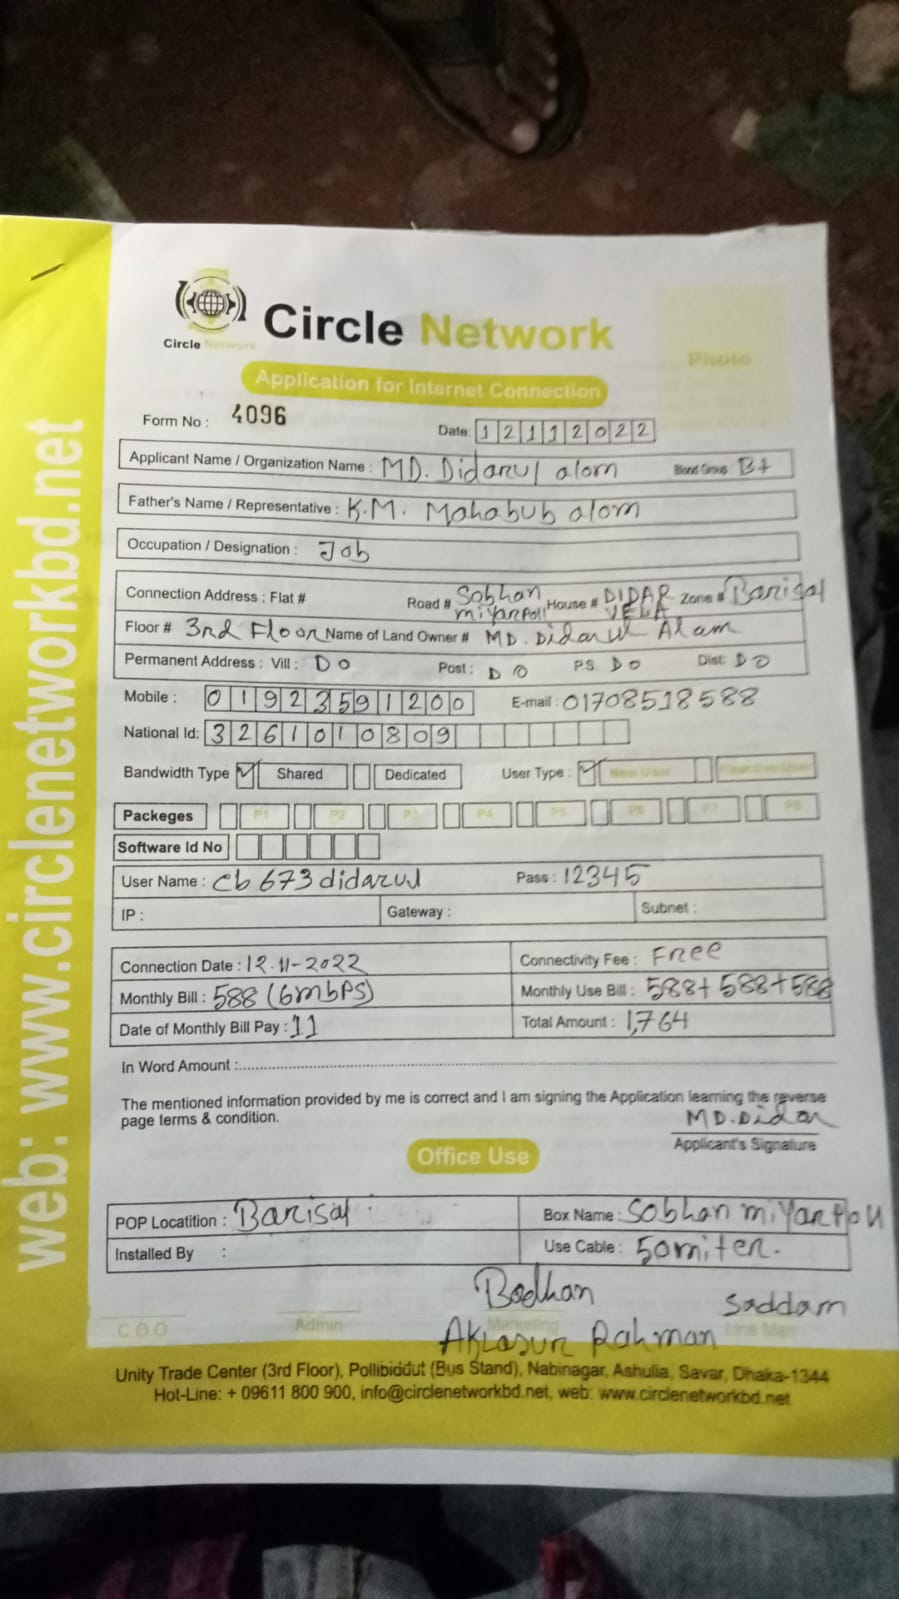 Circle Network
Circle Network
Photo
Application for Internet Connection
Form No : 4096
Date: 12112022
Applicant Name / Organization Name : MD. Didarul alom Blood Group B+
Father's Name / Representative : K.M. Mahabub alom
Occupation / Designation : Job
Connection Address : Flat # Road # Sobhan miyarpoll House # DIDAR VELA Zone # Barisal
Floor # 3rd Floor Name of Land Owner # MD. Didarul Alam
Permanent Address : Vill : DO Post : DO P.S. DO Dist: DO
Mobile : 01923591200 E-mail : 01708518588
National Id: 3261010809
Bandwidth Type ✓ Shared Dedicated User Type : ✓ New User
Packeges P1 P2 P3 P4 P5 P6 P7 P8
Software Id No
User Name : cb673didarul Pass : 12345
IP : Gateway : Subnet :
Connection Date : 12.11-2022 Connectivity Fee : Free
Monthly Bill : 588 (6mbps) Monthly Use Bill : 588+588+588
Date of Monthly Bill Pay : 11 Total Amount : 1,764
In Word Amount :
The mentioned information provided by me is correct and I am signing the Application learning the reverse
page terms & condition.
MD. Didar
Applicant's Signature
Office Use
POP Locatition : Barisal Box Name : Sobhan miyarpoll
Installed By : Use Cable : 50miter.
Bodhan Saddam
C.O.O Admin Marketing Line Man
Rahman
Unity Trade Center (3rd Floor), Pollibiddut (Bus Stand), Nabinagar, Ashulia, Savar, Dhaka-1344
Hot-Line: + 09611 800 900, info@circlenetworkbd.net, web: www.circlenetworkbd.net
web: www.circlenetworkbd.net